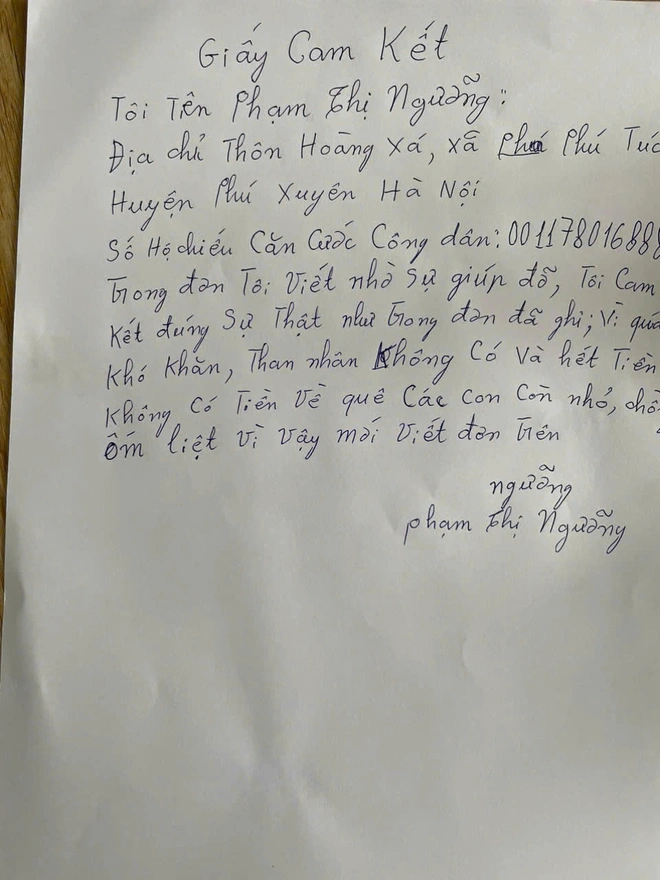 Giấy Cam Kết
Tôi Tên Phạm Thị Ngưỡng:
Địa chỉ Thôn Hoàng Xá, xã Phú Phú Túc
Huyện Phú Xuyên Hà Nội
Số Hộ chiếu Căn Cước Công dân: 001178016888
Trong đơn Tôi Viết nhờ Sự giúp đỡ, Tôi Cam
Kết đúng Sự Thật như Trong đơn đã ghi; Vì quá
Khó Khăn, Than nhân Không Có Và hết Tiền
Không Có Tiền Về quê Các Con Còn nhỏ, chồng
ốm liệt Vì Vậy mới Viết đơn Trên
ngưỡng
phạm Thị Ngưỡng